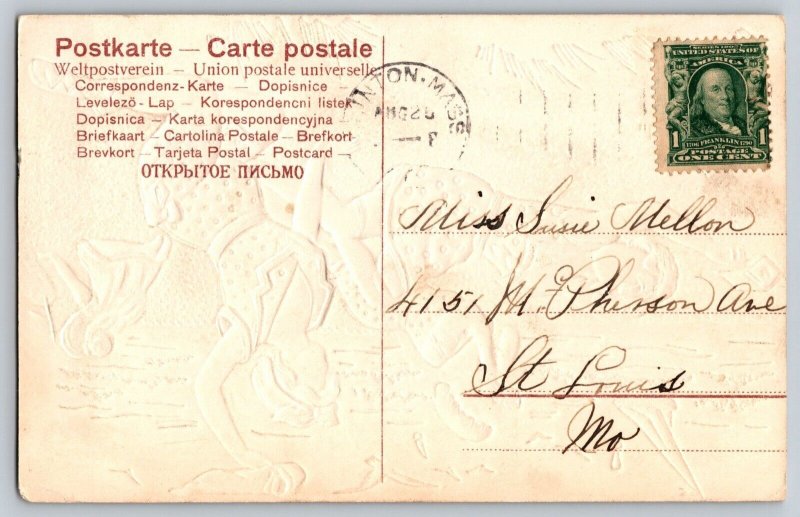 Postkarte — Carte postale
Weltpostverein — Union postale universelle
Correspondenz-Karte — Dopisnice —
Levelező - Lap — Korespondencni listek
Dopisnica — Karta korespondencyjna —
Briefkaart — Cartolina Postale — Brefkort
Brevkort — Tarjeta Postal — Postcard —
ОТКРЫТОЕ ПИСЬМО
NTON. MASS
AUG 26
SERIES 1902
UNITED STATES OF
AMERICA
1 1706 FRANKLIN 1790 1
POSTAGE
ONE CENT
Miss Susie Mellon
4151 McPherson Ave
St Louis
Mo